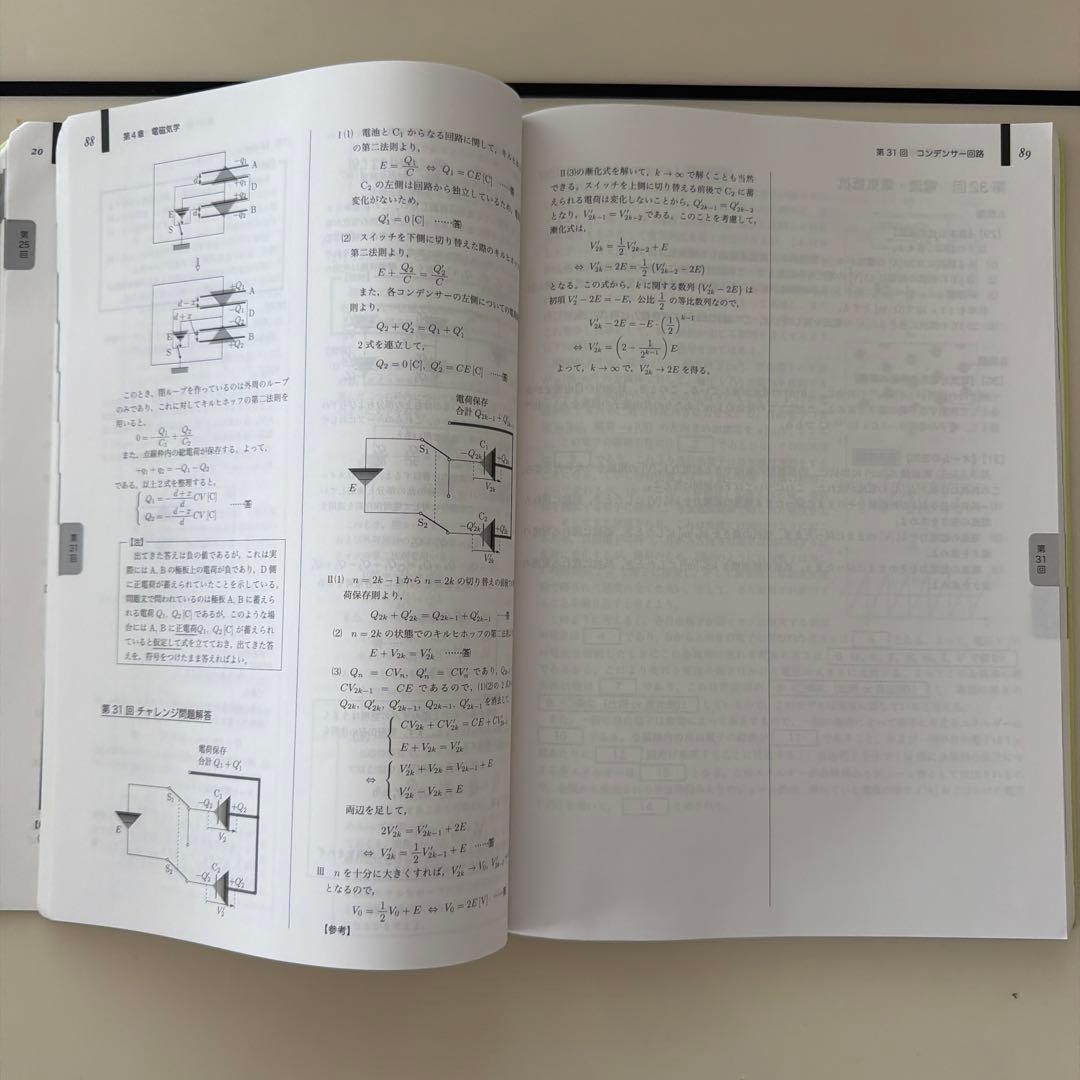 20
第25回
88
第4章 電磁気学
このとき,閉ループを作っているのは外周のループ
のみであり,これに対してキルヒホッフの第二法則を
用いると,
0=-Q₁/C₁+Q₂/C₂
また,点線枠内の総電荷が保存する。よって,
-q₁+q₂=-Q₁-Q₂
である。以上2式を整理すると,
Q₁=-(d+x)/d CV [C]
Q₂=-(d-x)/d CV [C] ……答
第31回
【注】
出てきた答えは負の値であるが,これは実
際には A, B の極板上の電荷が負であり,D 側
に正電荷が蓄えられていたことを示している。
問題文で問われているのは極板 A, B に蓄えら
れる電荷 Q₁, Q₂ [C] であるが,このような場
合には A, B に正電荷Q₁, Q₂ [C] が蓄えられ
ていると仮定して式を立てておき,出てきた答
えを,符号をつけたまま答えればよい。
第31回 チャレンジ問題解答
電荷保存
合計 Q₁+Q′₁
S₁
C₁
-Q₂
+Q₂
V₂
E
S₂
C₂
-Q′₂
+Q′₂
V′₂
I(1) 電池と C₁ からなる回路に関して,キルヒ
の第二法則より,
E=Q₁/C ⇔ Q₁=CE [C] ……答
C₂ の左側は回路から独立しているため,
変化がないため,
Q′₁=0 [C] ……答
(2) スイッチを下側に切り替えた際のキルヒホッ
第二法則より,
E+Q₂/C=Q′₂/C
また,各コンデンサーの左側についての電荷
則より,
Q₂+Q′₂=Q₁+Q′₁
2式を連立して,
Q₂=0 [C], Q′₂=CE [C] ……答
電荷保存
合計 Q₂ₖ₋₁+Q′₂ₖ₋
S₁
C₁
-Q₂ₖ
+Q₂ₖ
V₂ₖ
E
S₂
C₂
-Q′₂ₖ
+Q₂ₖ
V′₂ₖ
II(1) n=2k-1 から n=2k の切り替えの前後
荷保存則より,
Q₂ₖ+Q′₂ₖ=Q₂ₖ₋₁+Q′₂ₖ₋₁ …答
(2) n=2k の状態でのキルヒホッフの第二法
E+V₂ₖ=V′₂ₖ ……答
(3) Qₙ=CVₙ, Q′ₙ=CV′ₙ であり,
CV₂ₖ₋₁=CE であるので,(1)(2)の2式
Q₂ₖ, Q′₂ₖ, Q₂ₖ₋₁, Q′₂ₖ₋₁ を消去して,
CV₂ₖ+CV′₂ₖ=CE+CV′₂ₖ₋
E+V₂ₖ=V′₂ₖ
⇔ V′₂ₖ+V₂ₖ=V′₂ₖ₋₁+E
V′₂ₖ-V₂ₖ=E
両辺を足して,
2V′₂ₖ=V′₂ₖ₋₁+2E
⇔ V′₂ₖ=1/2 V′₂ₖ₋₁+E ……答
III n を十分に大きくすれば,V′₂ₖ→V₀, V′₂ₖ₋
となるので,
V₀=1/2 V₀+E ⇔ V₀=2E [V] ……答
【参考】
第31回 コンデンサー回路
89
II(3)の漸化式を解いて,k→∞ で解くことも当然
できる。スイッチを上側に切り替える前後で C₂ に蓄
えられる電荷は変化しないことから,Q′₂ₖ₋₁=Q′₂ₖ₋₂
となり,V′₂ₖ₋₁=V′₂ₖ₋₂ である。このことを考慮して,
漸化式は,
V′₂ₖ=1/2 V′₂ₖ₋₂+E
⇔ V′₂ₖ-2E=1/2 (V′₂ₖ₋₂-2E)
となる。この式から,k に関する数列 {V′₂ₖ-2E} は
初項 V′₂-2E=-E,公比 1/2 の等比数列なので,
V′₂ₖ-2E=-E・(1/2)ᵏ⁻¹
⇔ V′₂ₖ=(2-1/2ᵏ⁻¹)E
よって,k→∞ で,V′₂ₖ→2E を得る。
第31回